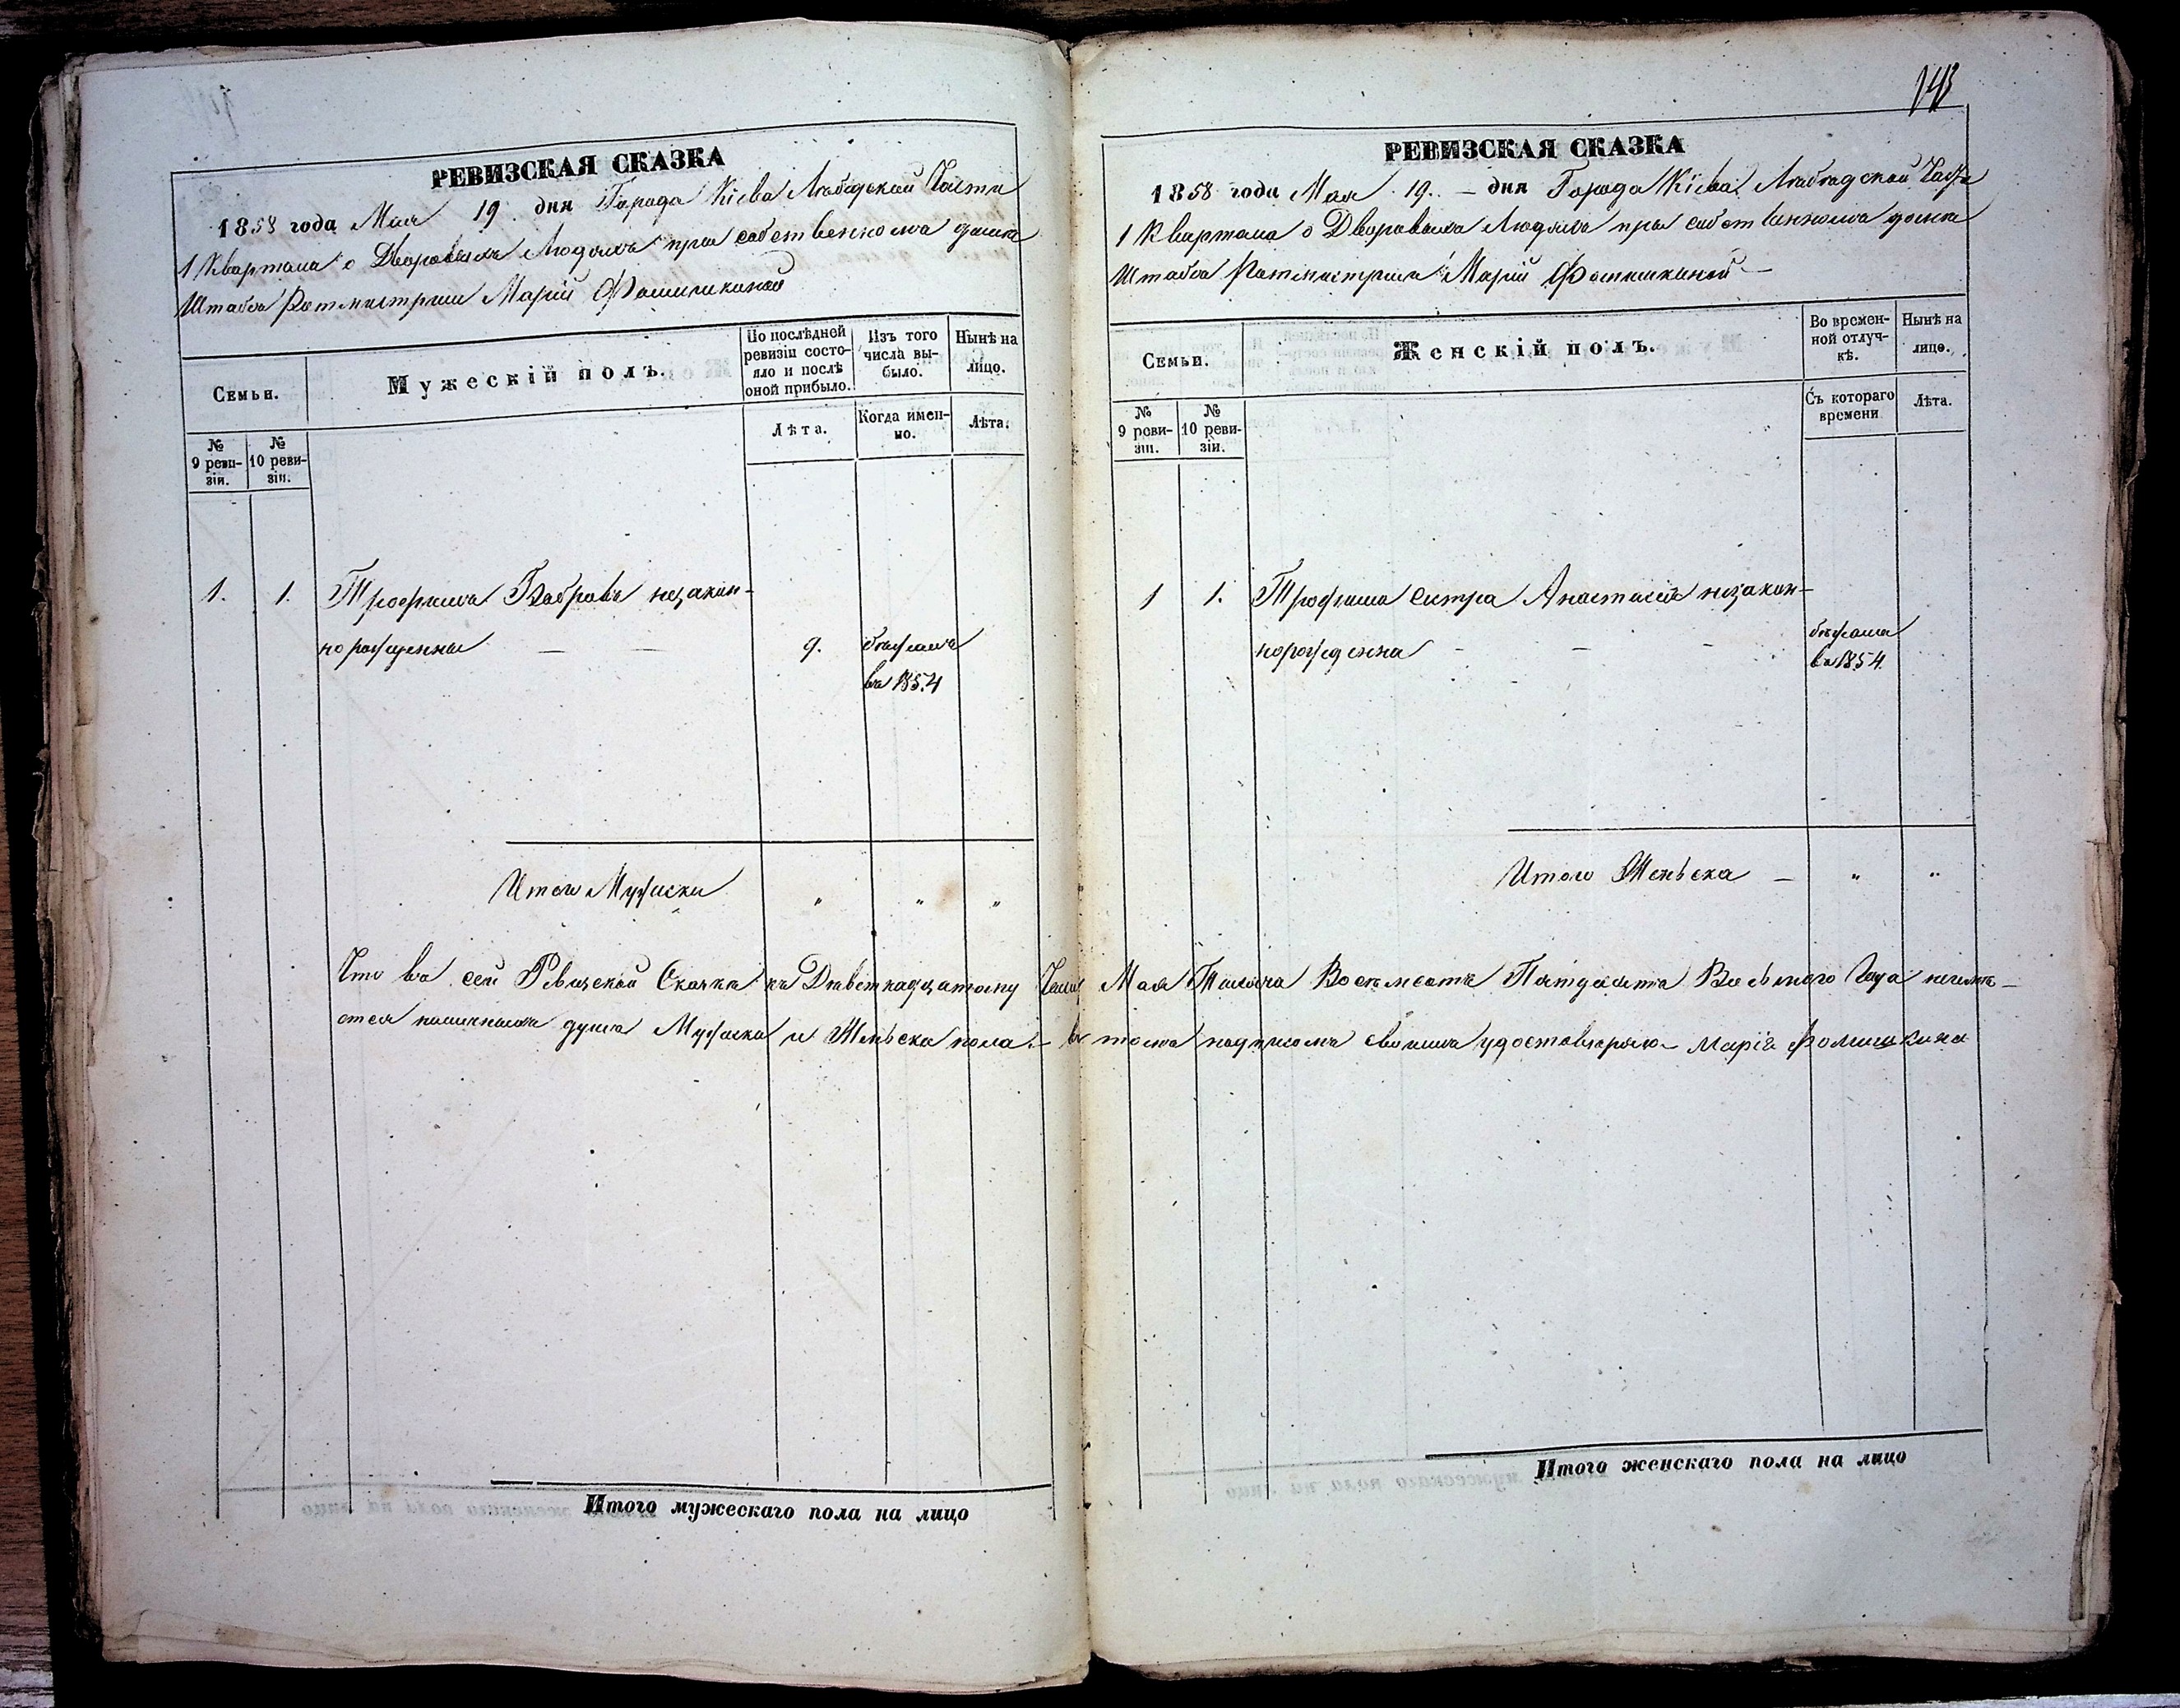 РЕВИЗСКАЯ СКАЗКА
1858 года Мая 19. дня Города Кіева Лыбядской Части
1 Квартала о Дворовыхъ Людяхъ при собственномъ домѣ
Штабсъ Ротмистрши Маріи Фомишкиной
Семьи.
Мужескій полъ.
По послѣдней ревизіи состояло и послѣ оной прибыло.
Изъ того числа выбыло.
Нынѣ на лицо.
№ 9 ревизіи.
№ 10 ревизіи.
Лѣта.
Когда именно.
Лѣта.
1. 1. Трофимъ Бобровъ незакон-
норожденны — — 9. бѣжалъ
въ 1854
Итого Мужска " " "
Что въ сей Ревизской Сказкѣ къ Девятнадцатому
стся наличныхъ душъ Мужска и Женьска пола. —
Итого мужескаго пола на лицо
143
РЕВИЗСКАЯ СКАЗКА
1858 года Мая 19. — дня Города Кіева Лыбядской Части
1 Квартала о Дворовыхъ Людяхъ при собственномъ домѣ
Штабсъ Ротмистрши Маріи Фомишкиной —
Семьи.
Женскій полъ.
Во временной отлучкѣ.
Нынѣ на лицо.
№ 9 ревизіи.
№ 10 ревизіи.
Съ котораго времени
Лѣта.
1 1. Трофима сестра Анастасія незакон-
норожденна - - - бѣжала
въ 1854.
Итого Женьска — " "
Мая Тысяча Восемьсотъ Пятдесятъ Восьмого Года неимѣ-
въ томъ подписомъ своимъ удостовѣряю — Марія Фомишкина
Итого женскаго пола на лицо